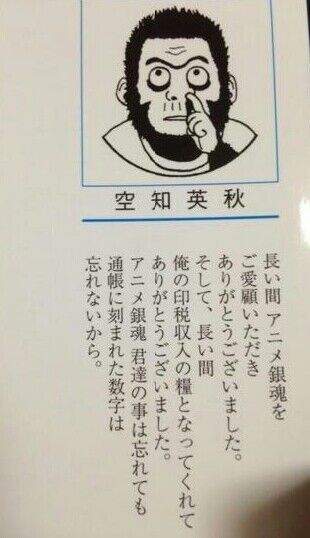 空知英秋
長い間 アニメ銀魂を
ご愛顧いただき
ありがとうございました。
そして、長い間
俺の印税収入の糧となってくれて
ありがとうございました。
アニメ銀魂 君達の事は忘れても
通帳に刻まれた数字は
忘れないから。